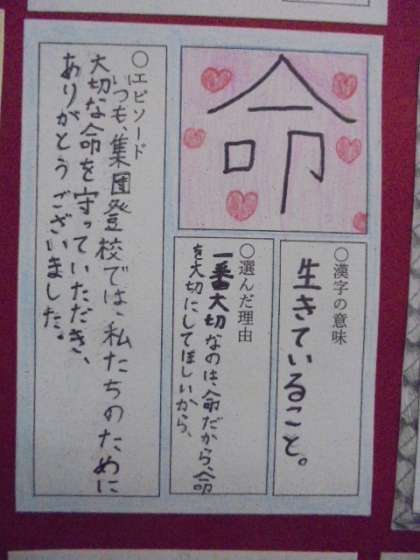 命
○漢字の意味
生きていること。
○選んだ理由
一番大切なのは、命だから、命
を大切にしてほしいから、
○エピソード
いつも、集団登校では、私たちのために
大切な命を守っていただき、
ありがとうございました。